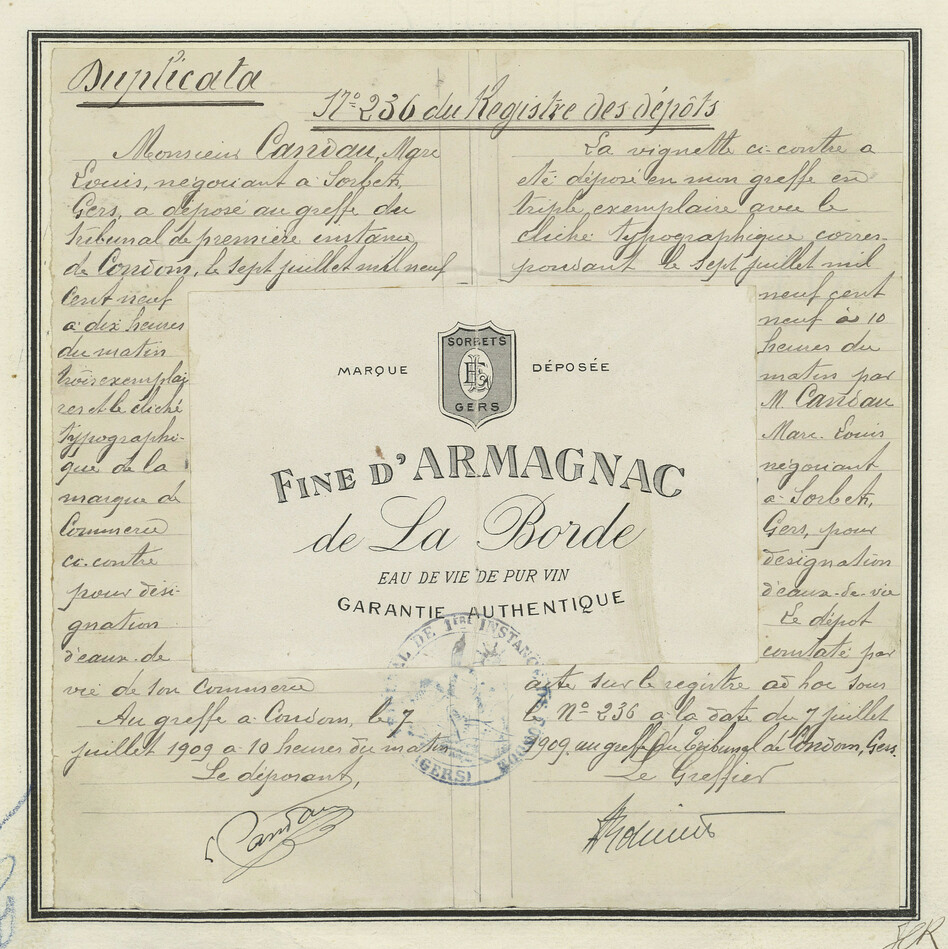 Duplicata
N° 236 du Registre des dépôts
Monsieur Candau, Marc
Louis, négociant à Sorbets,
Gers, a déposé au greffe du
tribunal de première instance
de Condom, le sept juillet mil neuf
cent neuf
à dix heures
du matin
trois exemplai
res et le cliché
typographi-
que de la
marque de
Commerce
ci-contre
pour dési-
gnation
d'eaux-de-
vie de son Commerce
Au greffe à Condom, le 7
juillet 1909 à 10 heures du matin
Le déposant,
Candau
La vignette ci-contre a
été déposé en mon greffe en
triple exemplaire avec le
cliché typographique corres-
pondant le sept juillet mil
neuf cent
neuf à 10
heures du
matin par
M. Candau
Marc-Louis
négociant
à Sorbets,
Gers, pour
désignation
d'eaux-de-vie
Le dépôt
constaté par
acte sur le registre ad hoc sous
le N° 236 à la date du 7 juillet
1909 au greffe du Tribunal de Condom, Gers.
Le Greffier
MARQUE DÉPOSÉE
SORBETS
GERS
FINE D'ARMAGNAC
de La Borde
EAU DE VIE DE PUR VIN
GARANTIE AUTHENTIQUE
DE 1ÈRE INSTANCE
(GERS)